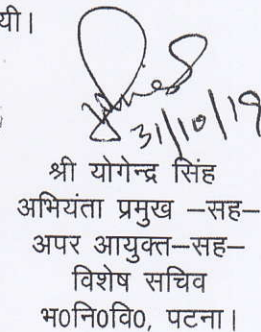 यी।
31/10/19
श्री योगेन्द्र सिंह
अभियंता प्रमुख –सह–
अपर आयुक्त–सह–
विशेष सचिव
भ0नि0वि0, पटना।